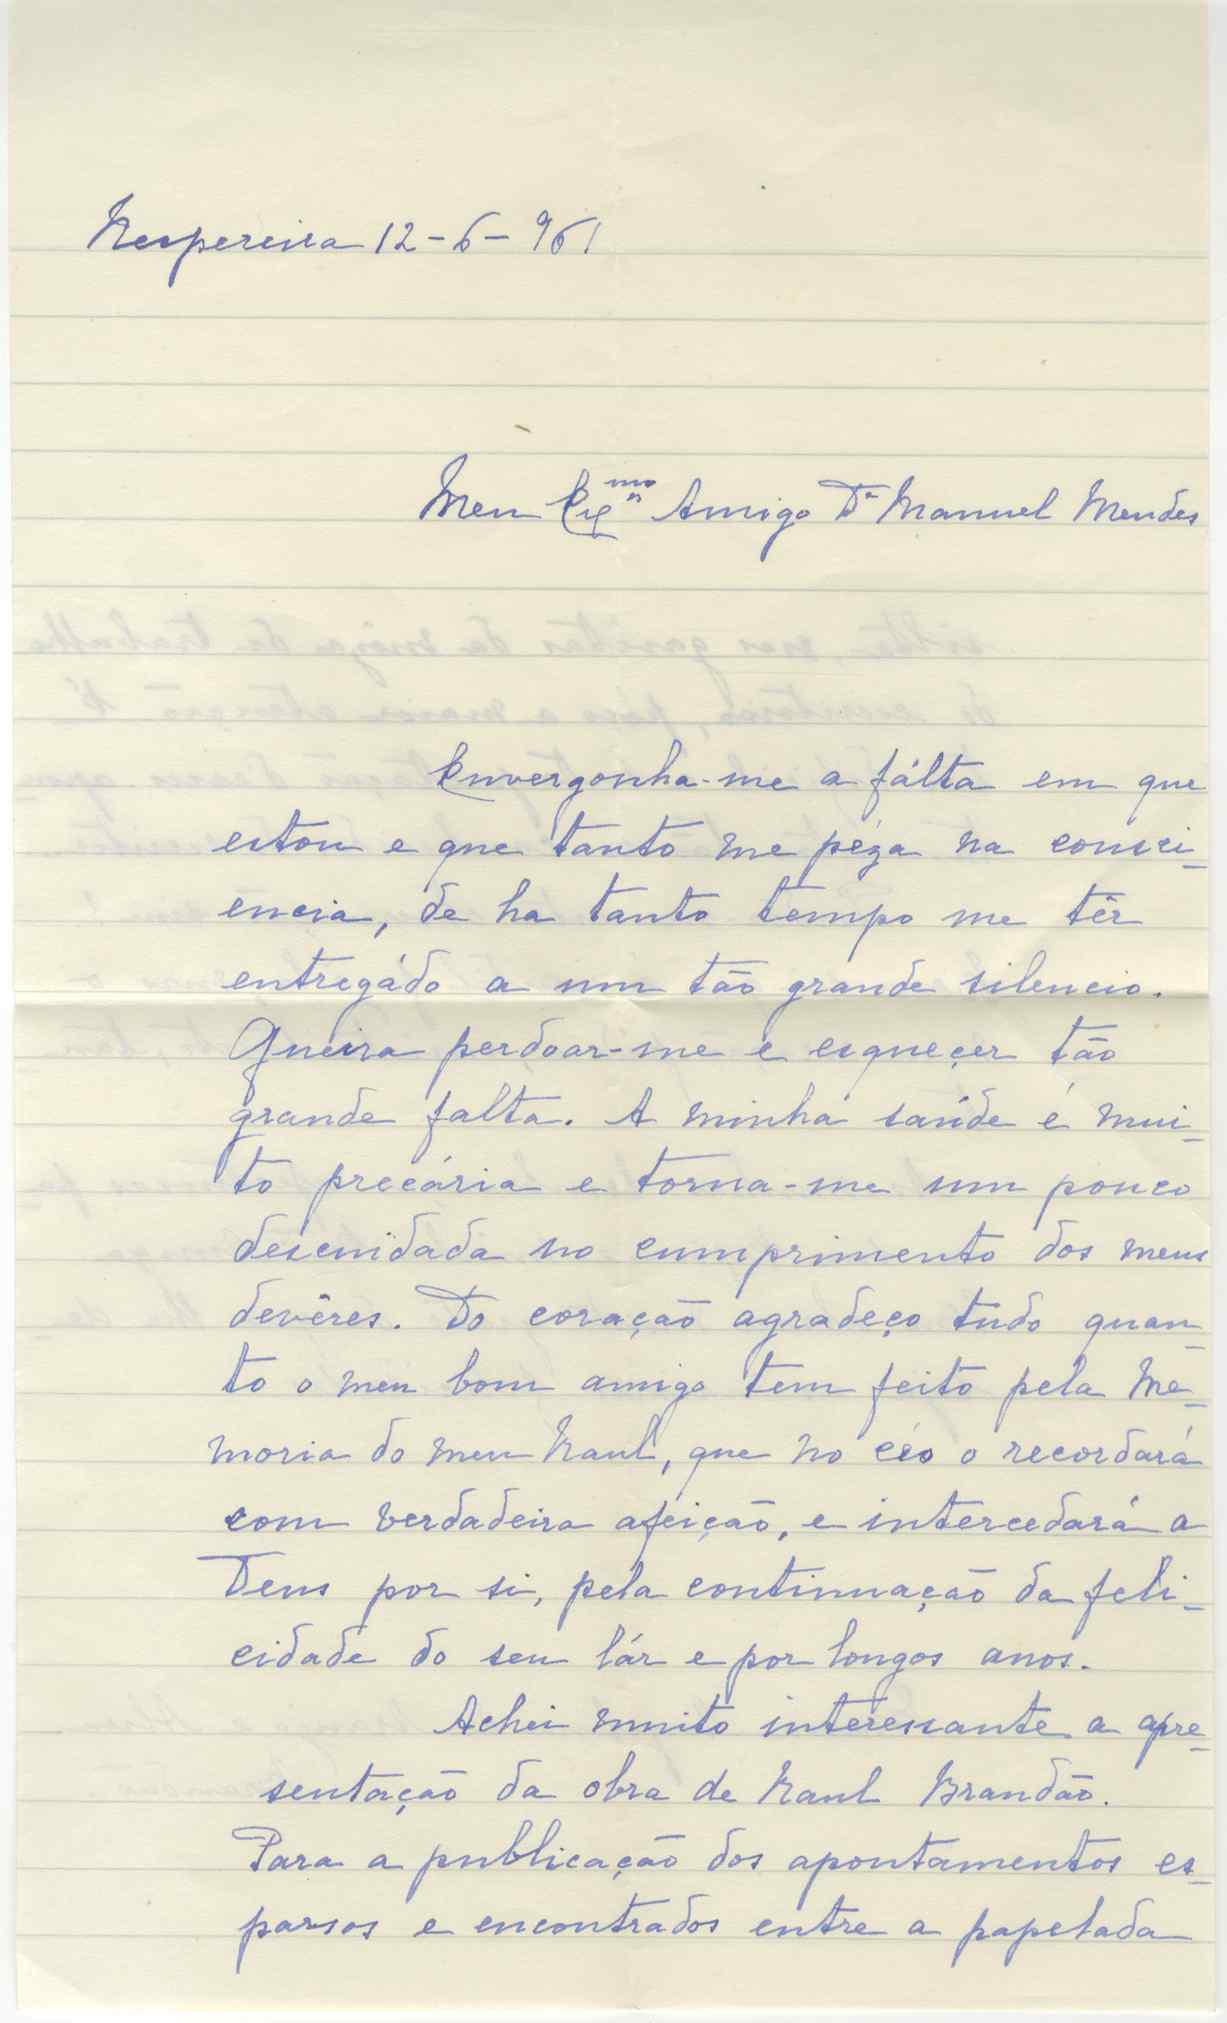 Nespereira 12-6-961
Meu Exmo Amigo Dr Manuel Mendes
Envergonha-me a fálta em que
estou e que tanto me péza na consci-
encia, de ha tanto tempo me têr
entregádo a um tão grande silencio.
Queira perdoar-me e esqueçer tão
grande falta. A minha saúde é mui-
to precária e torna-me um pouco
descuidada no cumprimento dos meus
devêres. Do coração agradeço tudo quan-
to o meu bom amigo tem feito pela Me-
moria do meu Raul, que no céo o recordará
com verdadeira afeição, e intercedará a
Deus por si, pela continuação da feli-
cidade do seu lár e por longos anos.
Achei muito interessante a apre-
sentação da obra de Raul Brandão.
Para a publicação dos apontamentos es-
parsos e encontrados entre a papelada